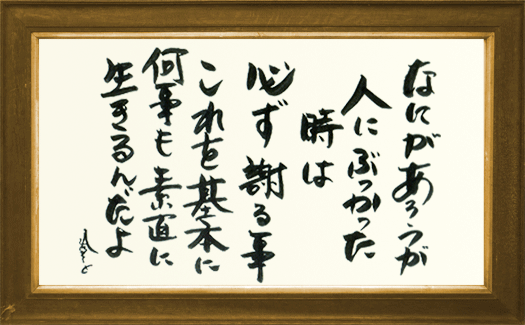 なにがあろうが
人にぶつかった
時は
必ず謝る事
これを基本に
何事も素直に
生きるんだよ